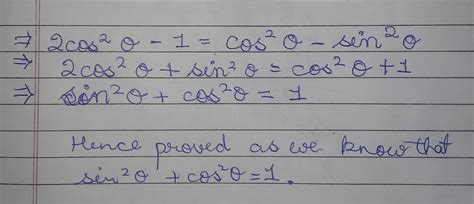 ⇒ 2cos² θ - 1 = cos² θ - sin² θ
⇒ 2cos² θ + sin² θ = cos² θ + 1
⇒ sin² θ + cos² θ = 1
Hence proved as we know that
sin² θ + cos² θ = 1.